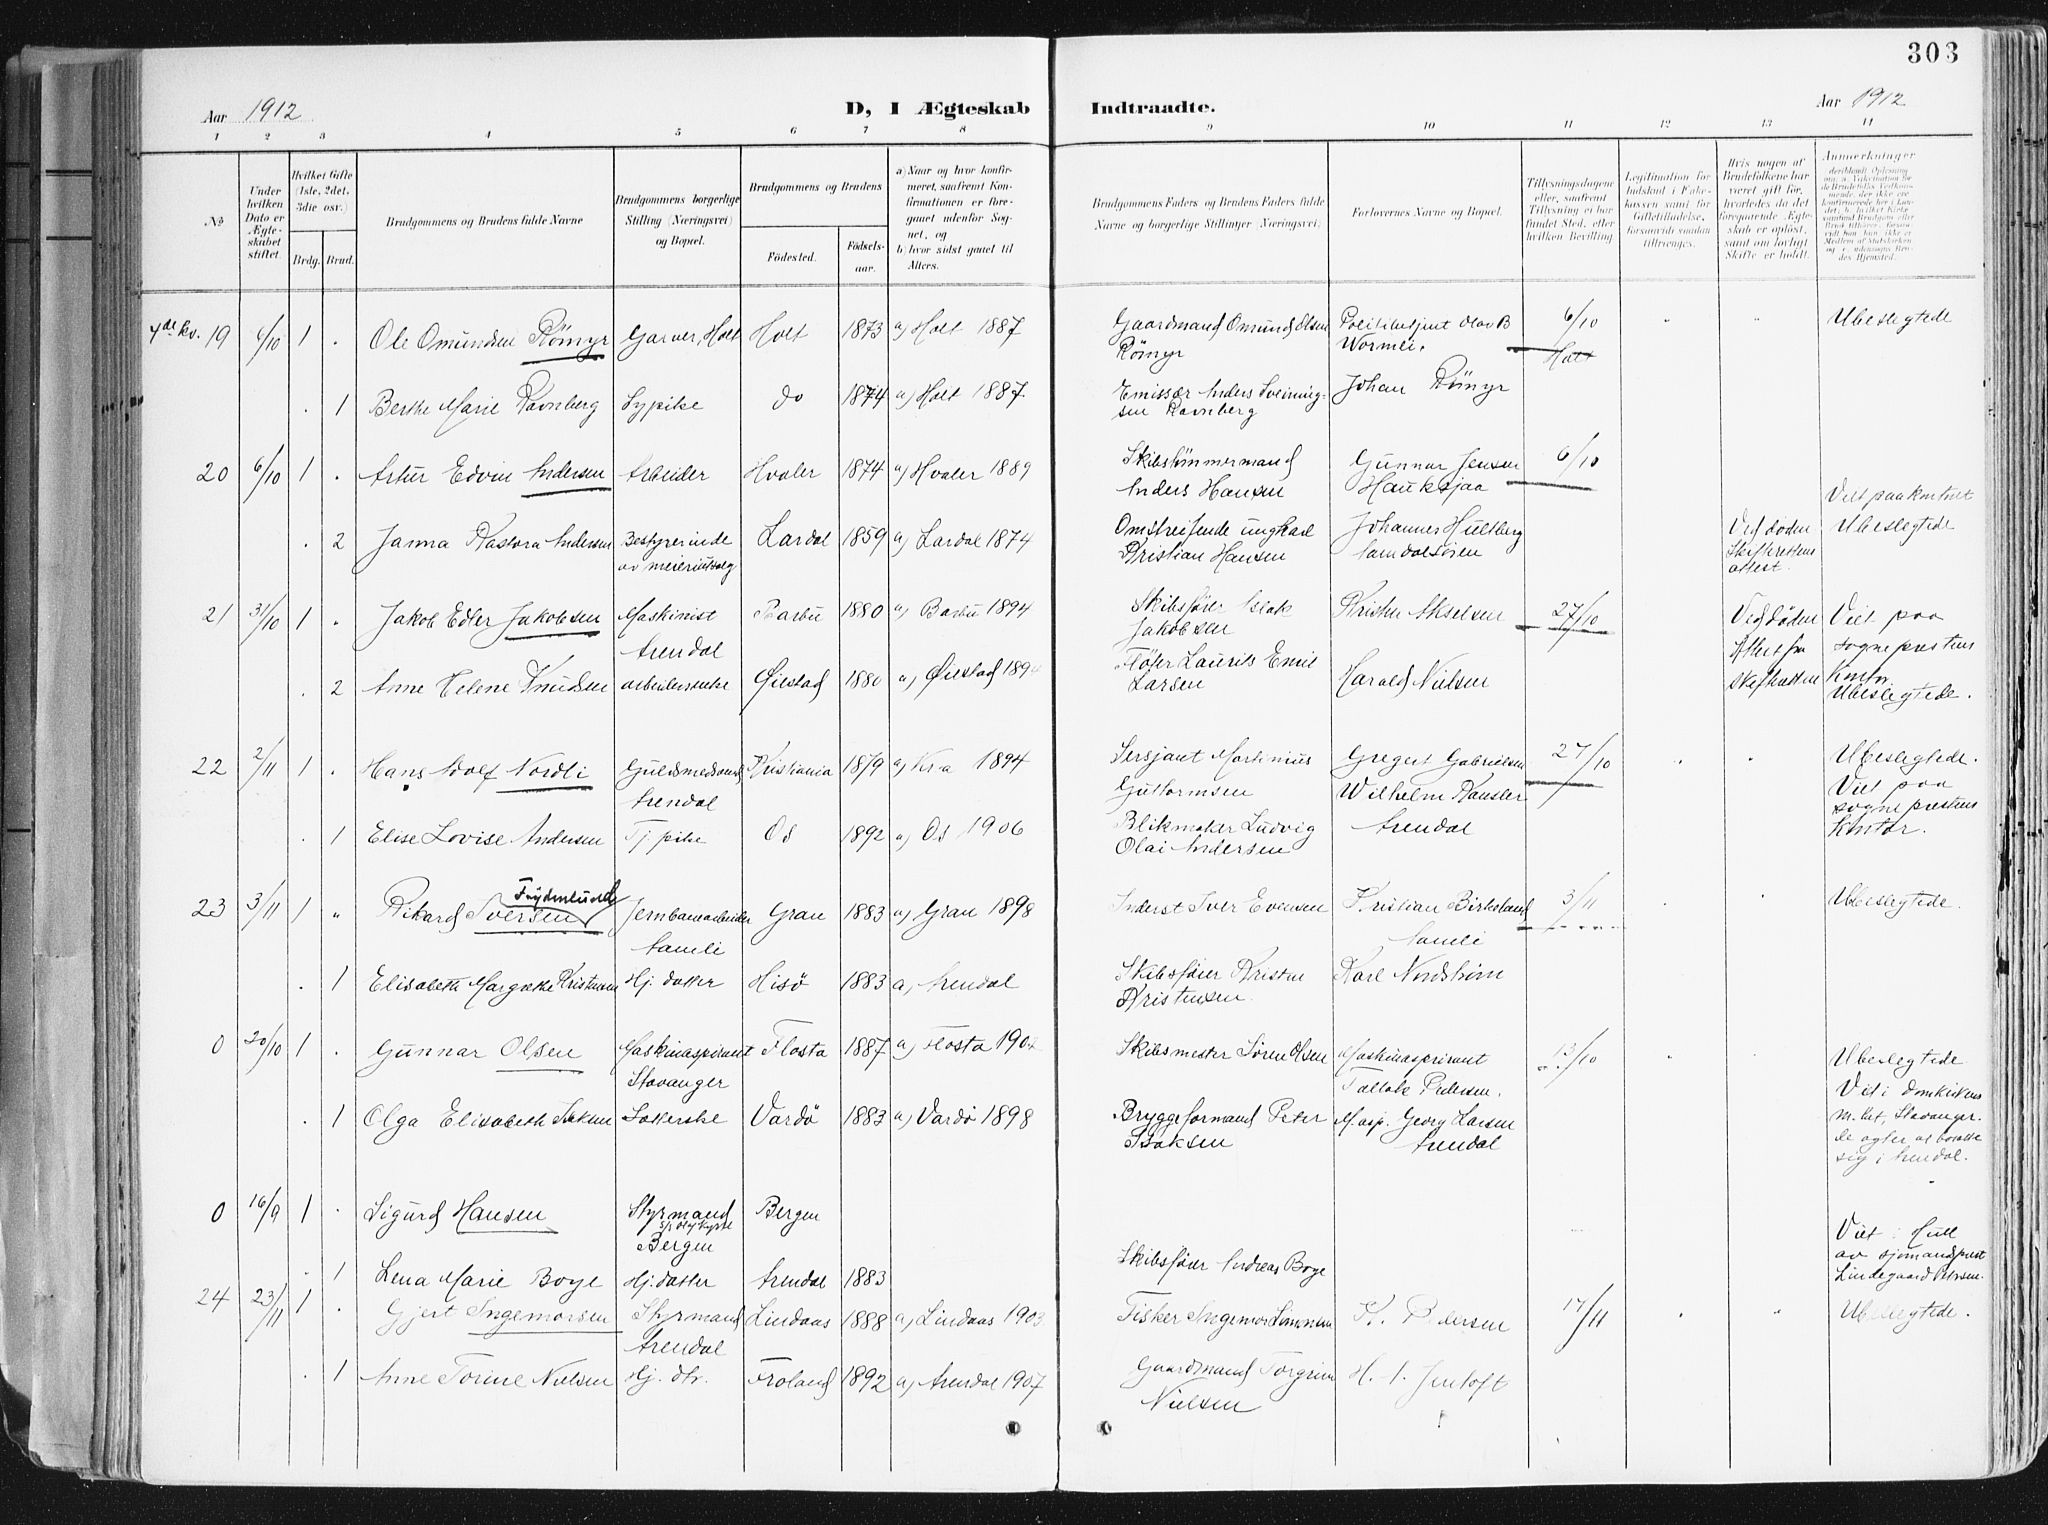 303
Aar 1912
D, I Ægteskab
Indtraadte.
Aar 1912
1 2 3 4 5 6 7 8 9 10 11 12 13 14
No
Under hvilken Dato er Ægteskabet stiftet.
Hvilket Gifte (1ste, 2det, 3die osv.)
Brdg. Brud.
Brudgommens og Brudens fulde Navne
Brudgommens borgerlige Stilling (Næringsvei) og Bopæl.
Brudgommens og Brudens
Fødested.
Fødselsaar.
a) Naar og hvor konfirmeret, saafremt Konfirmationen er foregaaet udenfor Sognet, og
b) hvor sidst gaaet til Alters.
Brudgommens Faders og Brudens Faders fulde Navne og borgerlige Stillinger (Næringsvei)
Forlovernes Navne og Bopæl.
Tillysningsdagene eller, saafremt Tillysning ei har fundet Sted, efter hvilken Bevilling
Legitimation for Indskud i Enkekassen samt for Giftetilladelse, forsaavidt saadan tiltrænges.
Hvis nogen af Brudefolkene har været gift før, hvorledes da det foregaaende Ægteskab er opløst, samt om lovligt Skifte er holdt.
Anmerkninger
4de kv. 19 6/10 1 Ole Omundsen Römyr Garver, Holt Holt 1873 a) Holt 1887 Gaardmand Omund Olsen Römyr Politibetjent Olav B Wormli. 6/10 Holt Ubeslegtede
1 Berthe Marie Ravnberg Sypike do 1874 a) Holt 1887 Emissær Anders Sveiningsen Ravnberg Johan Römyr
20 6/10 1 Artur Edvin Andersen Arbeider Hvaler 1874 a) Hvaler 1889 Skibstömmermand Anders Hansen Gunnar Jensen Hauksjaa 6/10 Viet paa kontoret
2 Janna Pastora Andersen Bestyrerinde av meieriutsalg Lardal 1859 a) Lardal 1874 Omstreifende ungkarl Kristian Hansen Johannes Hultberg Ved döden Skifterettens attest. Ubeslegtede
21 31/10 1 Jakob Edler Jakobsen Maskinist Arendal Barbu 1880 a) Barbu 1894 Skibsfører Isak Jakobsen Kristen Akselsen 27/10 Ved döden Attest fra Skifteretten Viet paa sogneprestens kontor. Ubeslegtede.
2 Anne Helene Knudsen arbeiderske Øiestad 1880 a) Øiestad 1894 Fløter Laurits Emil Larsen Harald Nielsen
22 2/11 1 Hans Adolf Nordli Guldsmedsvend Arendal Kristiania 1879 a) Kra 1894 Sersjant Martinius Guttormsen Gregert Gabrielsen 27/10 Ubeslegtede. Viet paa sogneprestens kontor.
1 Elise Lovise Andersen Tj pike Os 1892 a) Os 1906 Blikmaker Ludvig Olai Andersen Wilhelm Kansler Arendal
23 3/11 1 Rikard Iversen Frydenlund Jernbanearbeider Aamli Gran 1883 a) Gran 1898 Inderst Iver Evensen Kristian Birkeland Aamli 3/11 Ubeslegtede.
1 Elisabeth Margrethe Kristensen Hj. datter Hisö 1883 a, Arendal Skibsfører Kristen Kristensen. Karl Nordström
0 20/10 1 Gunnar Olsen Maskinaspirant Stavanger Flosta 1887 a) Flosta 1902 Skibsmester Sören Olsen Maskinaspirant Tallak Pedersen. 13/10 Ubeslegtede Viet i domkirkens m.ht, Stavanger. De agter at bosætte sig i Arendal.
1 Olga Elisabeth Isaksen Vardö 1883 a) Vardö 1898 Bryggeformand Peter Isaksen M.asp. Georg Larsen Arendal
0 16/9 1 Sigurd Hansen Styrmand Bergen Bergen Viet i Hull av sjømandsprest Lindegaard Petersen.
1 Lena Marie Boye Hj. datter Arendal 1883 Skibsfører Andreas Boye
24 23/11 1 Gjert Ingemorsen Styrmand Arendal Lindaas 1888 a) Lindaas 1903 Fisker Ingemor Simonsen K. Pedersen 17/11 Ubeslegtede.
1 Anne Torine Nielsen Hj. dtr. Froland 1892 a) Arendal 1907 Gaardmand Torgrim Nielsen H. A. Jentoft